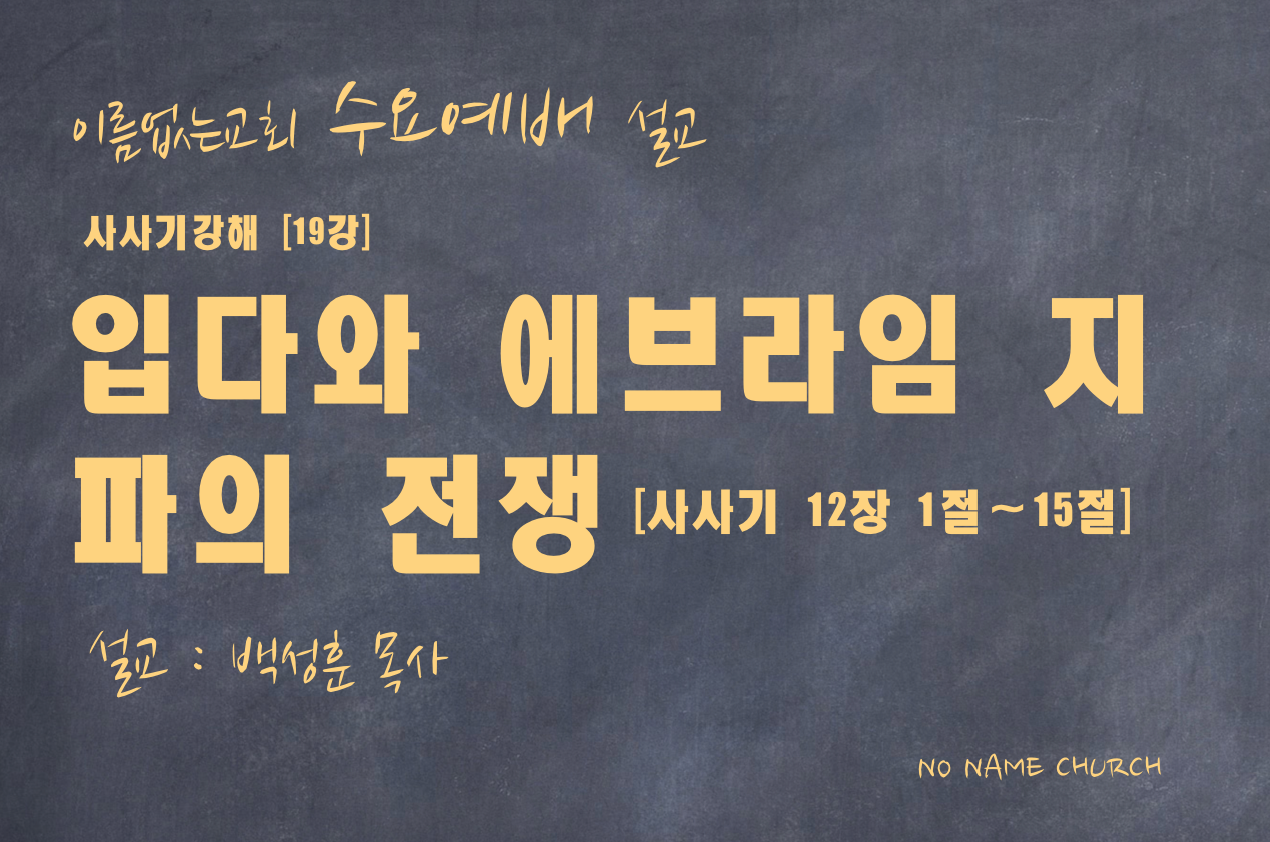 이름없는교회 수요예배 설교
사사기강해 [19강]
입다와 에브라임 지
파의 전쟁 [사사기 12장 1절~15절]
설교 : 백성훈 목사
NO NAME CHURCH